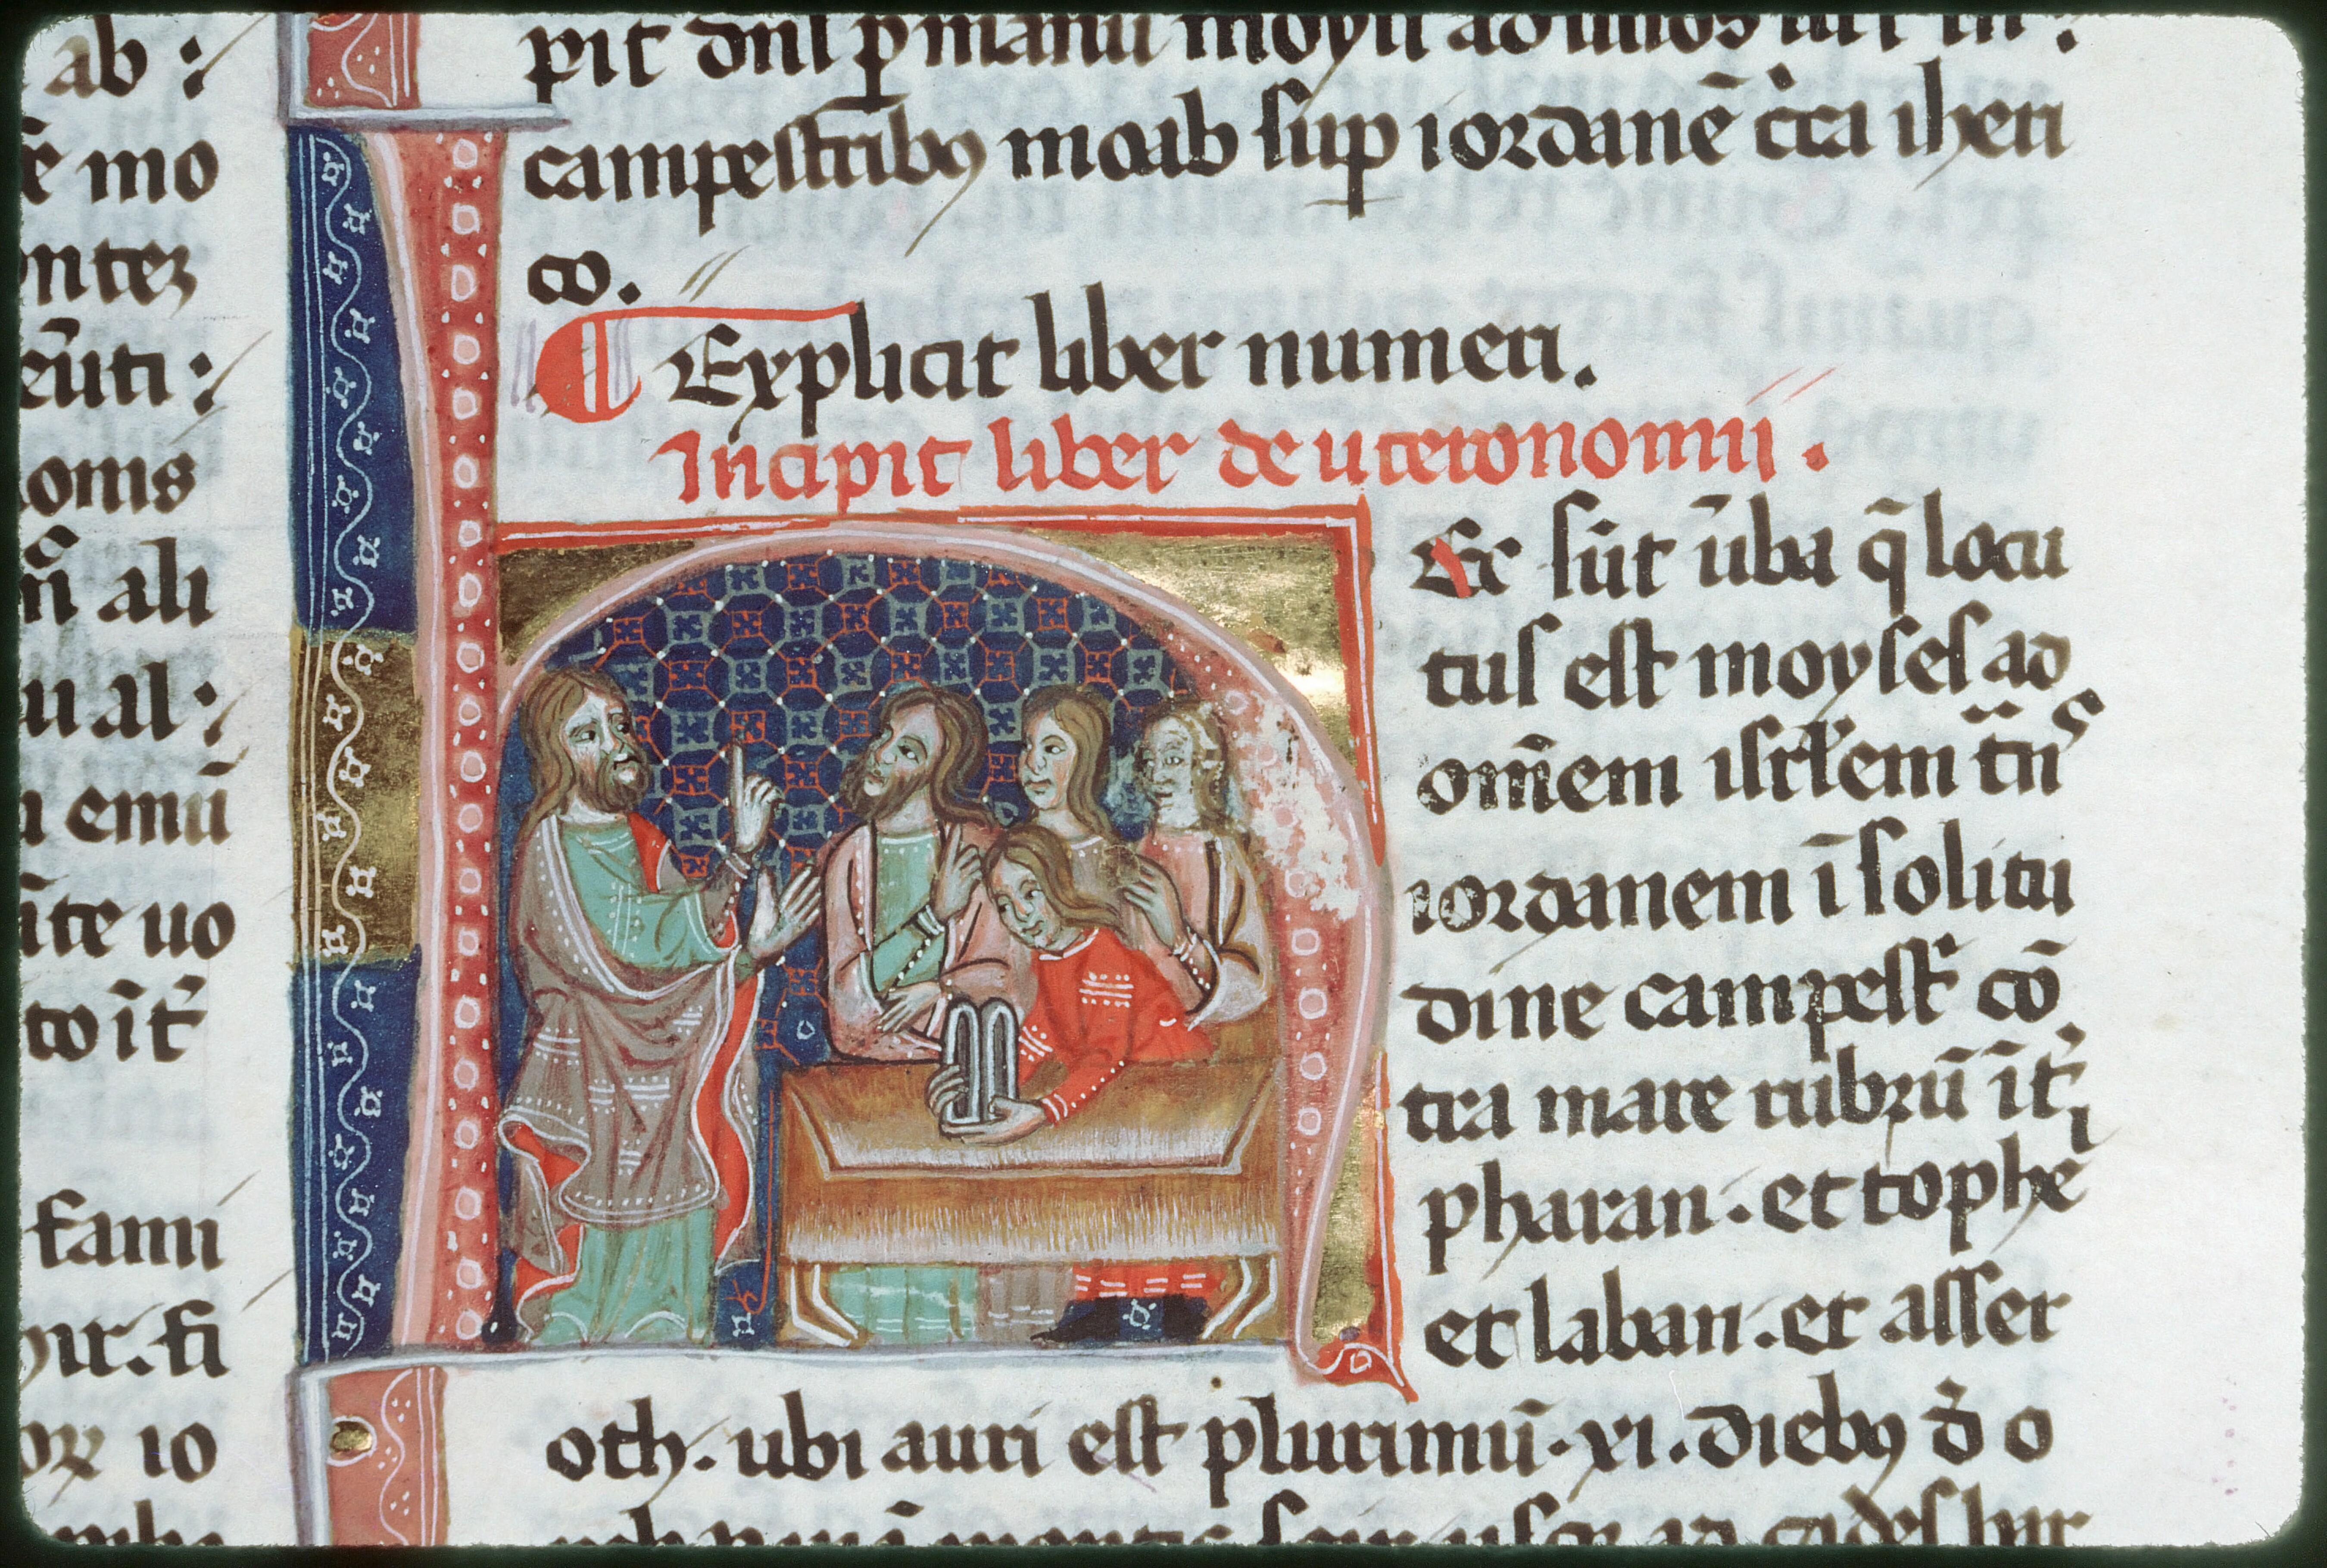 ab:
ē mo
ntez
eūti:
onis
ñ ali
u al:
emū
īte uo
to īt̄
fami
ir. fi
oꝝ io
pit dn̄i ꝑ manū moysi ad filios isrł in:
campestribꝯ moab suꝑ iordanē ꝯ̇tra iheri
co.
Explicit liber numeri.
Incipit liber deuteronomii.
Ec sūt ūba q̄ locu
tus est moyses ad
om̄em isrł'em t̄nˢ
iordanem ī solitu
dine campest̄ cō
tra mare rubꝛū īt̄
pharan. et tophe
et laban. et asser
oth. ubi auri est plurimū. xi. diebꝯ d̄ o